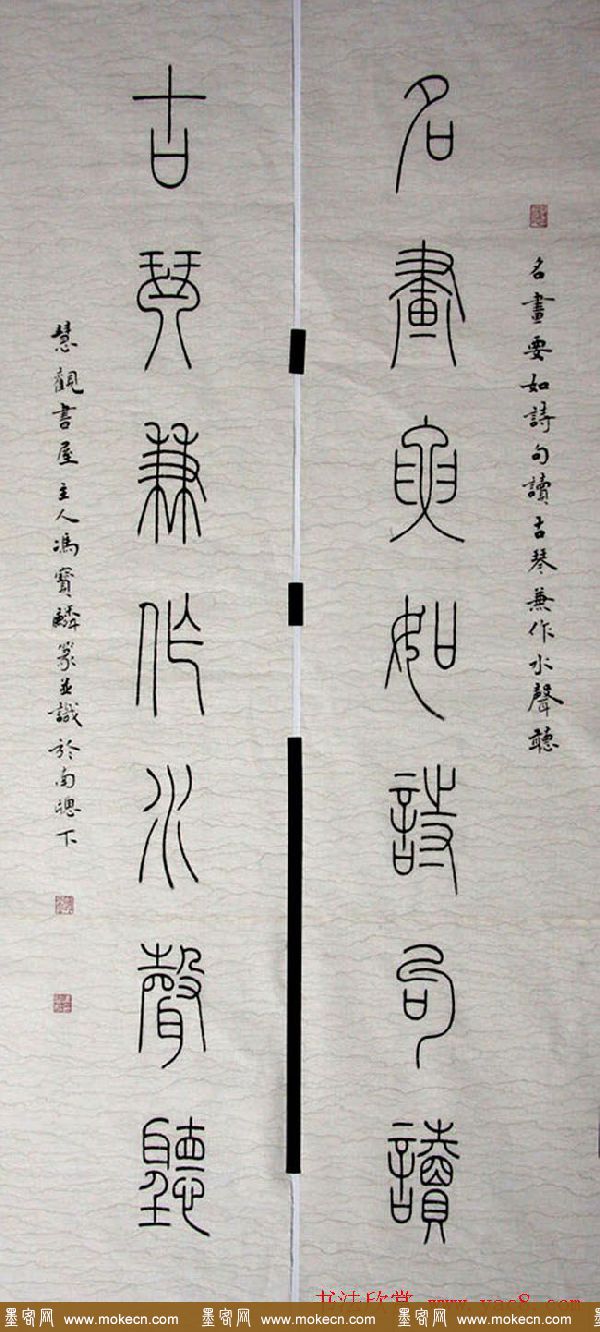 名畫要如詩句讀
古琴兼作水聲聽
名畫要如詩句讀古琴兼作水聲聽
慧觀書屋主人馮寶麟篆並識於南窗下
书法欣赏 www.yac8.com
墨客网 www.mokecn.com 墨客网 www.mokecn.com 墨客网 www.mokecn.com